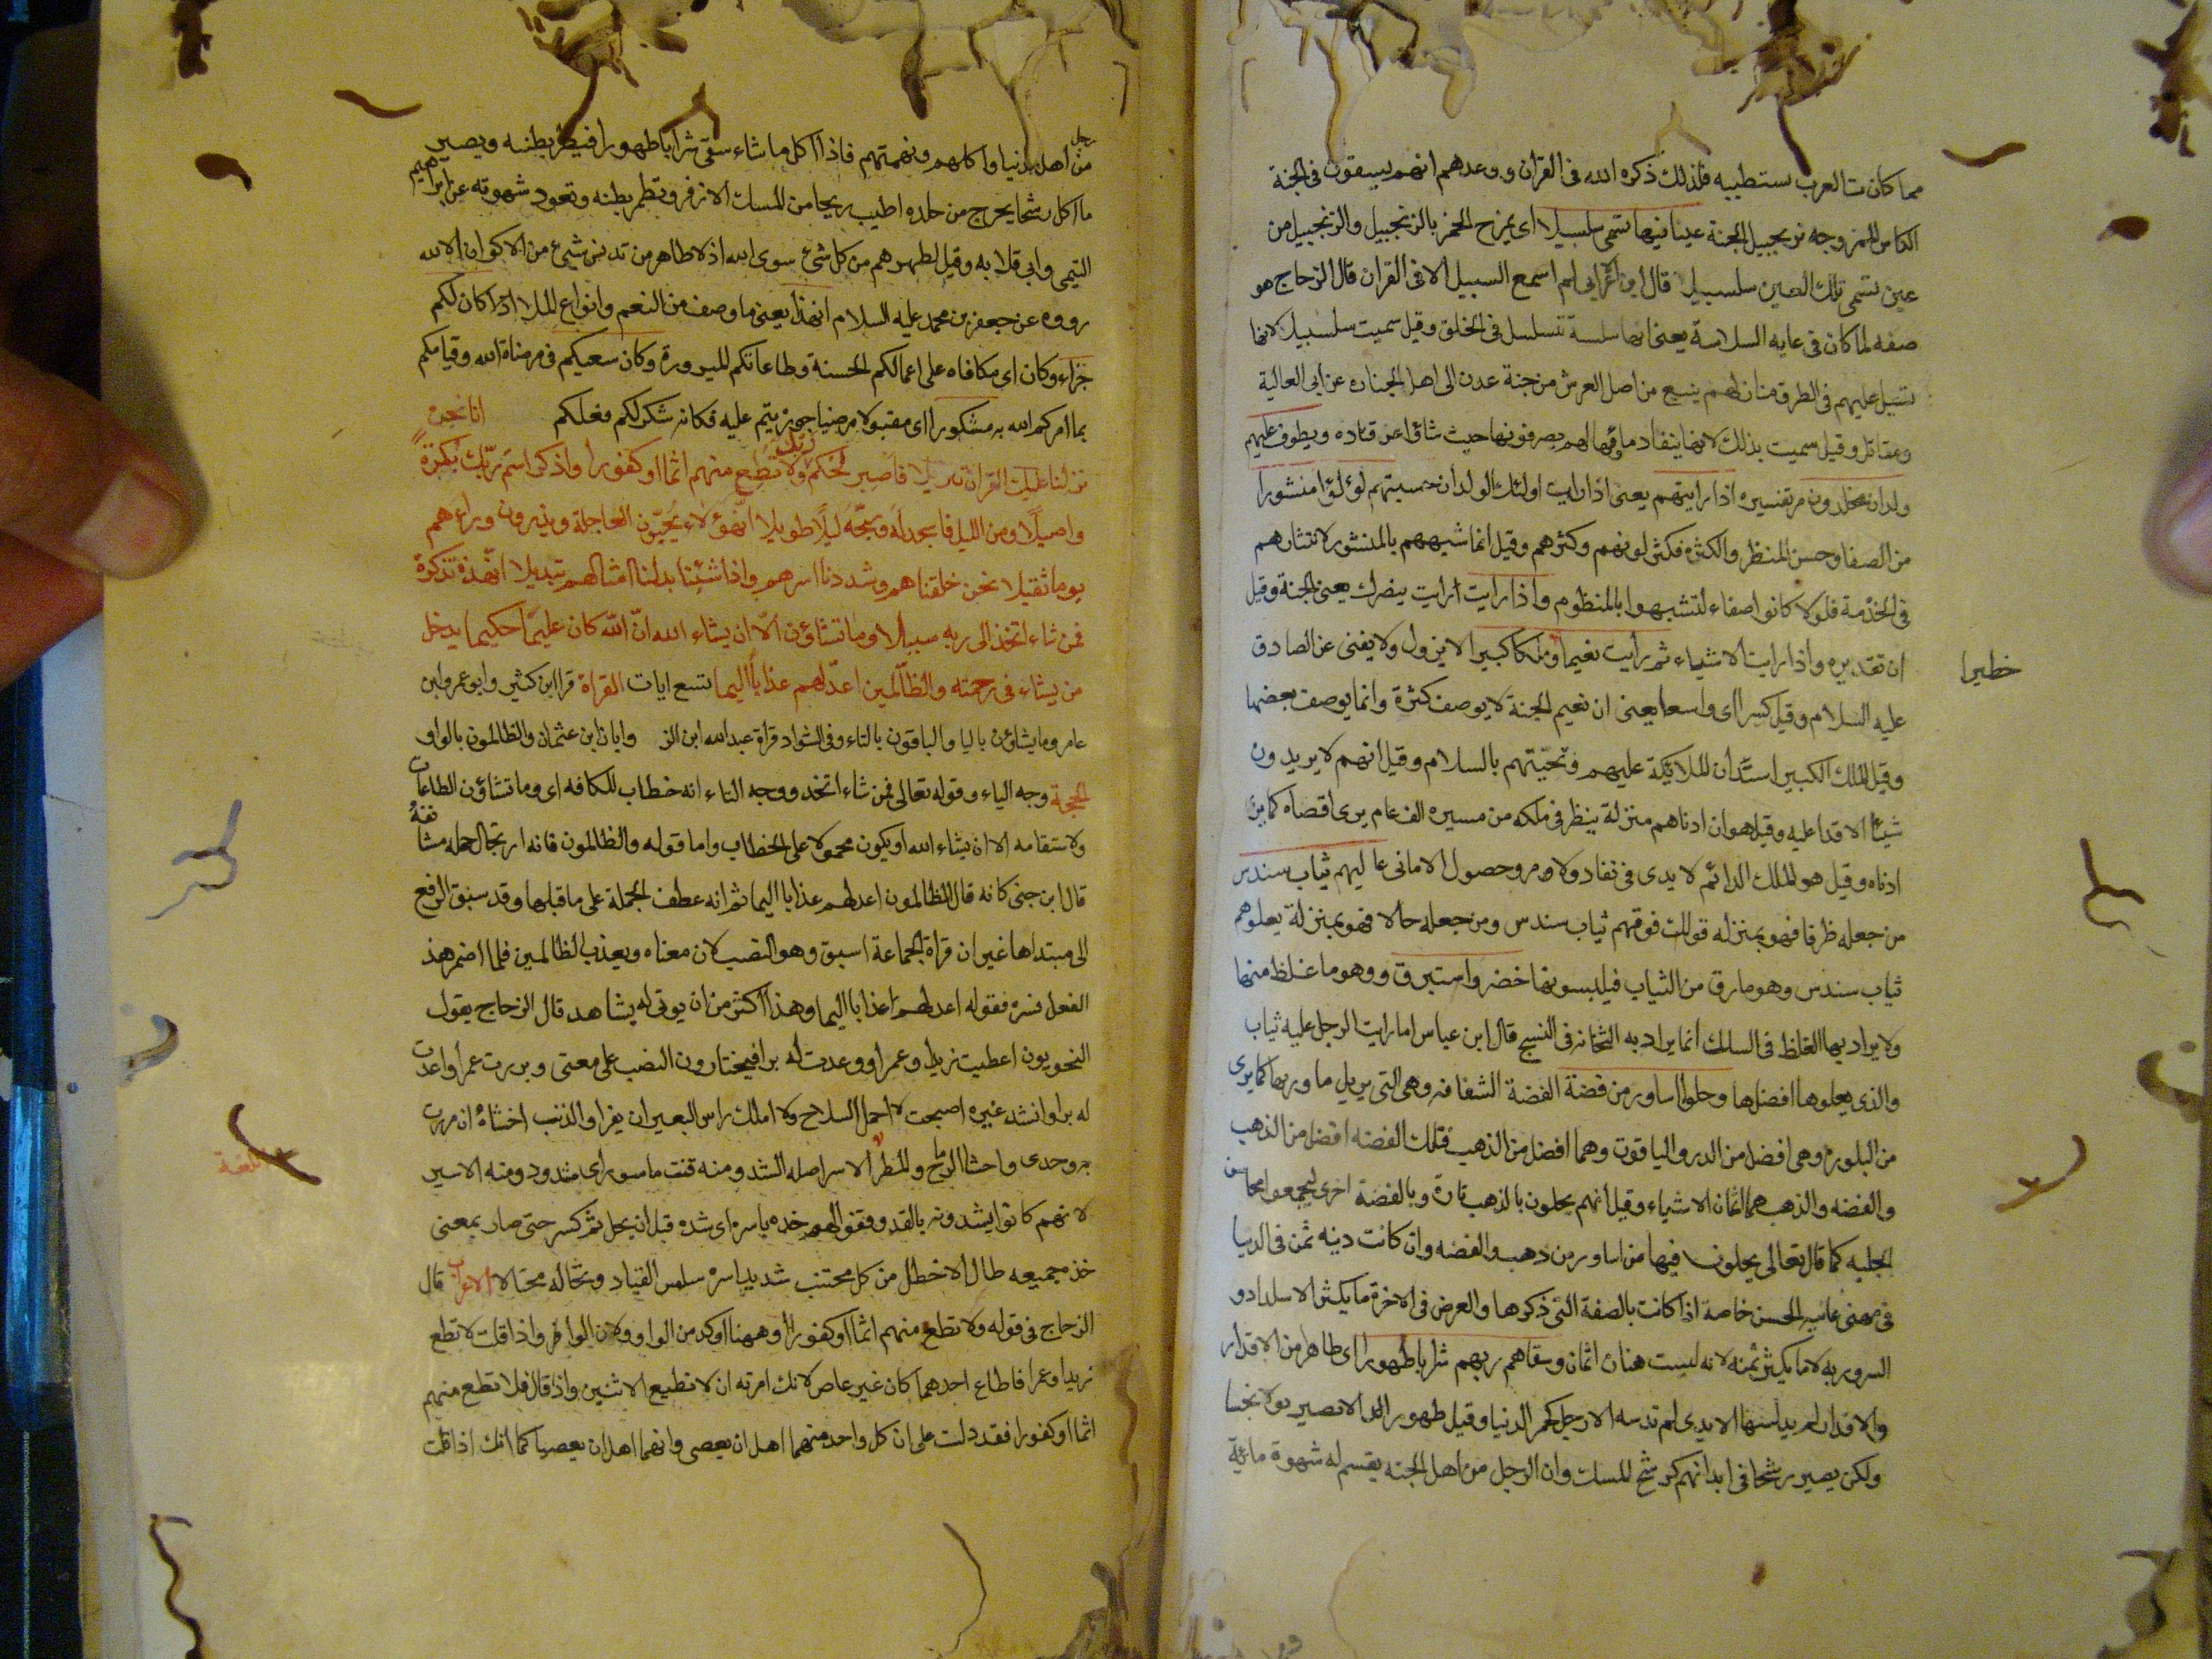 مما كان ستا لعرب يستطيبه فلذلك ذكره الله فى القران ووعدهم انهم يسقون فى الجنة
الكاس الممزوجه بزنجبيل الجنة عينا فيها تسمى سلسبيلا اى يمزج الخمر بالزنجبيل والزنجبيل من
عين تسمى تلك العين سلسبيلا قال ابن اعرابى لم اسمع السبيل الا فى القران قال الزجاج هو
صفه لما كان فى غايه السلاسة يعنى انها سلسة تتسلسل فى الحلق وقيل سميت سلسبيلا لانها
تسيل عليهم فى الطرق منازلهم ينبع من اصل العرش من جنة عدن الى اهل الجنان عن ابى العالية
ومقاتل وقيل سميت بذلك لانها ينقاد ماؤها لهم يصرفونها حيث شاؤا عن قتاده ويطوف عليهم
ولدان مخلدون مر تفسيره اذا رايتهم يعنى اذا رايت اولئك الولدان حسبتهم لؤلؤا منثورا
من الصفا وحسن المنظر والكثره فكثر لونهم وكثرهم وقيل انما شبههم بالمنثور لانتثارهم
فى الخدمة فلو كانوا صفاء لتشبهوا بالمنظوم واذا رايت ارايت ببصرك يعنى الجنة وقيل
ان تقديره واذا رايت الاشياء ثم رأيت نعيما وملكا كبيرا لا يزول ولا يفنى عن الصادق
خطيرا
عليه السلام وقيل كبيرا اى واسعا يعنى ان نعيم الجنة لا يوصف كثرة وانما يوصف بعضها
وقيل الملك الكبير استئذان الملائكة عليهم وتحيتهم بالسلام وقيل انهم لا يريدون
شيئا الا قدا عليه وقيل هو ان ادناهم منزلة ينظر فى ملكه من مسيره الف عام يرى اقصاه كما يرى
ادناه وقيل هو الملك الدائم لا يدى فى نفاد ولا وحصول الامانى عاليهم ثياب سندس
من جعله ظرفا فهو بمنزله قولك فوقهم ثياب سندس ومن جعله حالا فهو بمنزلة يعلوهم
ثياب سندس وهو ما رق من الثياب فيلبسونها خضر واستبرق ووهو ما غلظ منها
ولا يراد بها الغلظ فى السلك انما يراد به الثخانه فى النسج قال ابن عباس اما رايت الرجل عليه ثياب
والذى يعلوها افضلها وحلوا اساور من فضة الفضة الشفافه وهى التى يرى ما ورءها كما يرى
من البلوره وهى افضل من الدر والياقوت وهما افضل من الذهب فتلك الفضه افضل من الذهب
والفضه والذهب هما اثمان الاشياء وقيل انهم يحلون بالذهب تارة وبالفضة اخرى ليجمعوا محاسن
الحليه كما قال تعالى يحلون فيها من اساور من دهب والفضه وان كانت دينه ثمن فى الدنيا
فى معنى غايه الحسن خاصة اذا كانت بالصفة التى ذكرها والعرض فى الاخرة ما يكثر الاسلدادو
السرور به لا ما يكثر ثمنه لانه ليست هناك اثمان وسقاهم ربهم شرابا طهورا اى طاهرا من الاقذار
والاقذار لم يدنسها الايدى لم تدسه الارجل كخمر الدنيا وقيل طهورا لا تصير بولا نجسا
ولكن يصير رشحا فى ابدانهم كرشح المسك وان الرجل من اهل الجنه يقسم له شهوة مائة
رجل
من اهل الدنيا واكلهم ونهمتهم فاذا اكل ما شاء سقى شرابا طهورا فيطهر بطنه ويصير
ما اكل رشحا يخرج من جلده اطيب ريحا من المسك الاذفر وتطمر بطنه وتعود شهوته عن ابراهيم
التيمى وابى قلابه وقيل يطهرهم من كل شئ سوى الله اذ لا طاهر من تدنس بشئ من الاكوان الا الله
رووه عن جعفر بن محمد عليه السلام ان هذا يعنى ما وصف من النعم وانواع الملاذ كان لكم
جزاء وكان اى مكافاه على اعمالكم الحسنة وطاعاتكم المبرورة وكان سعيكم فى مرضاة الله وقيامكم
بما امركم الله به مشكورا اى مقبولا مرضيا جوزيتم عليه فكانه شكر لكم فعلكم انا نحن
نزلنا عليك القران تنزيلا فاصبر لحكم ربك ولا تطع منهم اثما او كفورا واذكر اسم ربك بكرة
واصيلا ومن الليل فاسجد له وسبحه ليلا طويلا ان هؤلاء يحبون العاجلة ويذرون وراءهم
يوما ثقيلا نحن خلقناهم وشددنا اسرهم واذا شئنا بدلنا امثالهم تبديلا ان هذه تذكرة
فمن شاء اتخذ الى ربه سبيلا وما تشاؤن الا ان يشاء الله ان الله كان عليما حكيما يدخل
من يشاء فى رحمته والظالمين اعد لهم عذابا اليما تسع ايات القراة قرا ابن كثير وابو عمرو وابن
عامر وما يشاؤن باليا والباقون بالتاء وفى الشواذ قراة عبد الله ابن الز وابان ابن عثمان والظالمون بالواو
الحجة وجه الياء وقوله تعالى فمن شاء اتخذ ووجه التاء انه خطاب للكافه اى وما تشاؤن الطاعات
ولاستقامه الا ان يشاء الله او يكون محمولا على الخطاب واما قوله والظالمون فانه ارتجال جمله مستانفة
قال ابن جنى كانه قال الظالمون اعد لهم عذابا اليما ثم انه عطف الجملة على ما قبلها وقد سبق الرفع
الى مبتداها غير ان قراة الجماعة اسبق وهو النصب لان معناه ويعذب الظالمين فلما اضمر هذ
الفعل فسره فقوله اعد لهم اعذابا اليما وهذا اكثر من ان يوتى له بشاهد قال الزجاج يقول
النحويون اعطيت زيدا وعمرا ووعدت له برا فيختارون النصب على معنى وبررت عمرا واعدت
له برا وانشد غيره اصبحت لا احمل السلاح ولا املك راس البعير ان يفرا والذئب اخشاه ان مررت
به وحدى واخشا الرياح والمطرا الاسر اصله الشد ومنه قتب ماسور اى مشدود ومنه الاسير
اللغة
لانهم كانوا يشدونه بالقد وقولهم خذه باسره اى شده قبل ان يحل ثم كثر حتى صار بمعنى
خذ جميعه طال الاخطل من كل مجتنب شديد اسره سلس القياد وتخاله مختالا الاعراب قال
الزجاج فى قوله ولا تطع منهم اثما او كفورا او ههنا اوكد من الواو ولان الواو اذا قلت لا تطع
زيدا وعمرا فاطاع احدهما كان غير عاص لانك امرته ان لا تطيع الاثنين واذا قال فلا تطع منهم
اثما او كفورا فقد دلت على ان كل واحد منهما اهل ان يعصى وانهما اهل ان يعصيا كما انك اذا قلت